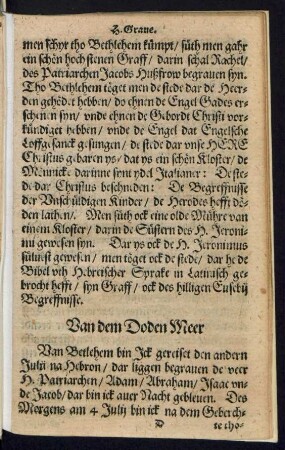 H. Graue.
men schyr tho Bethlehem kümpt / süth men gahr
ein schön hoch stenen Graff / darin schal Rachel /
des Patriarchen Jacobs Hußfrow begrauen syn.
Tho Bethlehem töget men de stede dar de Heer-
den gehödet hebben / do ehnen de Engel Gades er-
schenen syn / vnde ehnen de Gebordt Christi vor-
kündiget hebben / vnde de Engel dat Engelsche
Loffgesanck gesungen / de stede dar vnse HERE
Christus gebaren ys / dat ys ein schön Kloster / de
Münnicke darinne synt ydel Italianer: De ste-
de dar Christus beschneden: De Begreffnisse
der Vnschüldigen Kinder / de Herodes hefft dö-
den lathen / Men süth ock eine olde Mühre van
einem Kloster / darin de Süstern des H. Jeroni-
mi gewesen syn. Dar ys ock de H. Jeronimus
süluest gewesen / men töget ock de stede / dar he de
Bibel vth Hebreischer Sprake in Latinisch ge-
brocht hefft / syn Graff / ock des hilligen Eusebij
Begreffnisse.
Van dem Doden Meer
Van Betlehem bin Ick gereiset den andern
Julij na Hebron / dar liggen begrauen de veer
H. Patriarchen / Adam / Abraham / Isaac vn-
de Jacob / dar bin ick auer Nacht gebleuen. Des
Morgens am 4 Julij bin ick na dem Geberch-
D te tho-